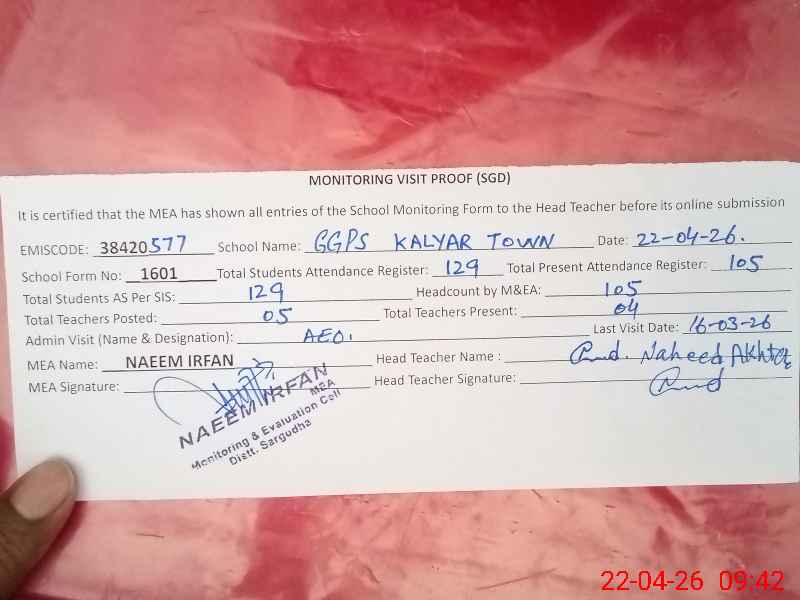 MONITORING VISIT PROOF (SGD)
It is certified that the MEA has shown all entries of the School Monitoring Form to the Head Teacher before its online submission
EMISCODE: 38420577 School Name: GGPS KALYAR TOWN Date: 22-04-26.
School Form No: 1601 Total Students Attendance Register: 129 Total Present Attendance Register: 105
Total Students AS Per SIS: 129 Headcount by M&EA: 105
Total Teachers Posted: 05 Total Teachers Present: 04
Admin Visit (Name & Designation): AEO. Last Visit Date: 16-03-26
MEA Name: NAEEM IRFAN Head Teacher Name : Naheed Akhtar
MEA Signature: Head Teacher Signature:
NAEEM IRFAN
MEA
Monitoring & Evaluation Cell
Distt. Sargudha
22-04-26 09:42